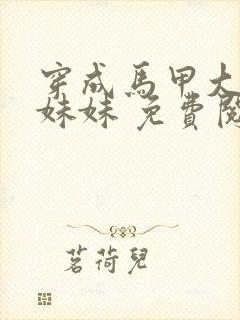 穿成馬甲大
妹妹 免費閱
茗荷兒